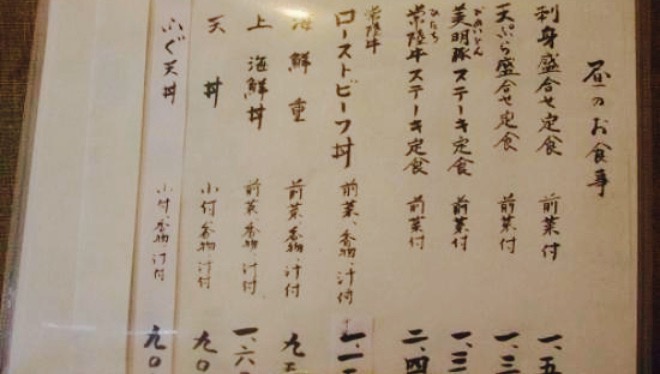 昼のお食事
刺身盛合せ定食 前菜付 一、五
天ぷら盛合せ定食 前菜付 一、三
美明豚ステーキ定食 前菜付 一、三
おめいとん
常陸牛ステーキ定食 前菜付 二、四
ひたち
常陸牛
ローストビーフ丼 前菜、香物、汁付
海鮮重 前菜、香物、汁付 九
上海鮮丼 前菜、香物、汁付 一、六
天丼 小付、香物、汁付 九〇
ふぐ天丼 小付、香物、汁付 九〇